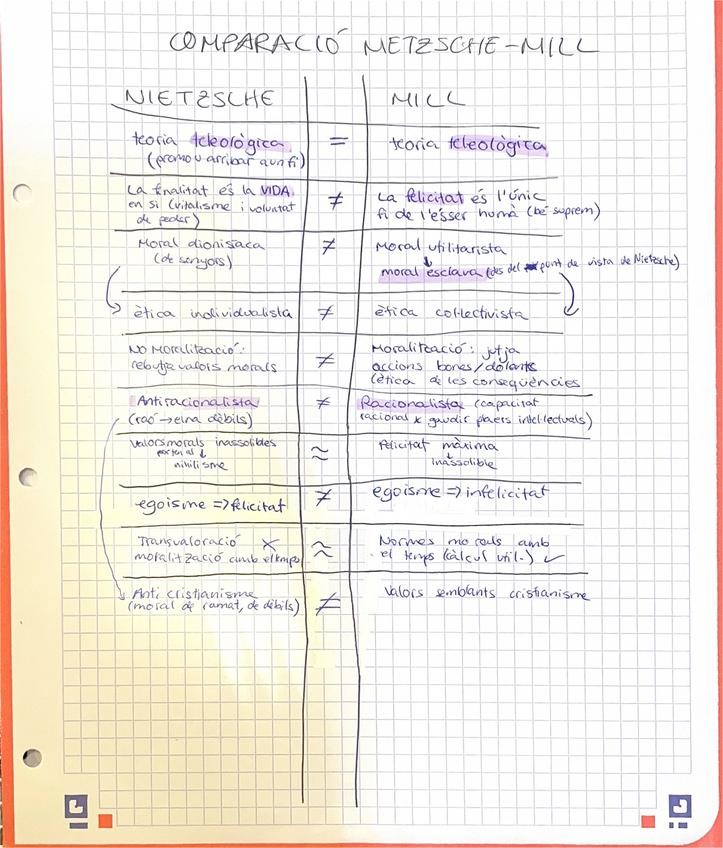 COMPARACIÓ NETZSCHE-MILL
NIETZSCHE
MILL
teoria teleològica
(promou arribar a un fi)
=
teoria teleològica
La finalitat és la VIDA
en si (vitalisme i voluntat
de poder)
≠
La felicitat és l'únic
fi de l'ésser humà (bé suprem)
Moral dionisíaca
(de senyors)
≠
Moral utilitarista
↓
moral esclava (des del punt de vista de Nietzsche)
ètica individualista
≠
ètica col·lectivista
NO Moralització:
rebutja valors morals
≠
Moralització: jutja
accions bones/dolentes
(ètica de les conseqüències
Antiracionalista
(raó → eina dèbils)
≠
Racionalista (capacitat
racional x gaudir plaers intel·lectuals)
Valors morals inassolibles
porten al ↓
nihilisme
≈
Felicitat màxima
↓
inassolible
egoisme => felicitat
≠
egoisme => infelicitat
Transvaloració X
moralització amb el temps
≈
Normes morals amb
el temps (càlcul util.) ✓
Anti cristianisme
(moral de ramat, de dèbils)
≠
Valors semblants cristianisme